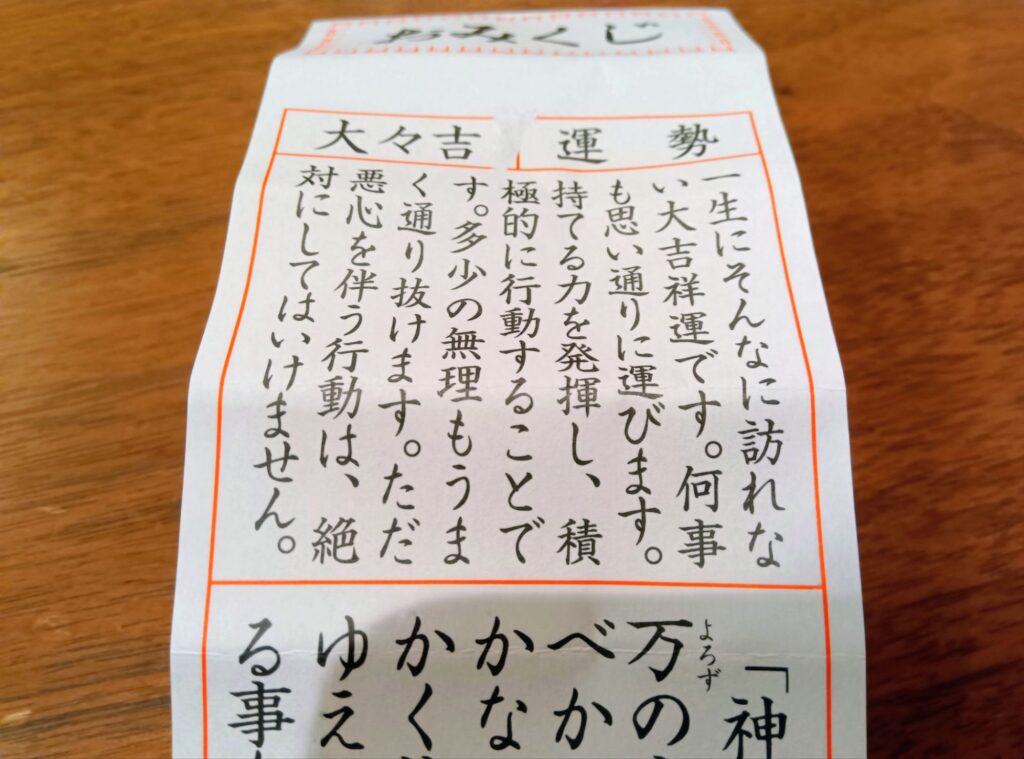 おみくじ
運勢
大々吉
一生にそんなに訪れな
い大吉祥運です。何事
も思い通りに運びます。
持てる力を発揮し、積
極的に行動することで
す。多少の無理もうま
く通り抜けます。ただ
悪心を伴う行動は、絶
対にしてはいけません。
「神
よろず
万の
べか
かな
かく
ゆえ
る事